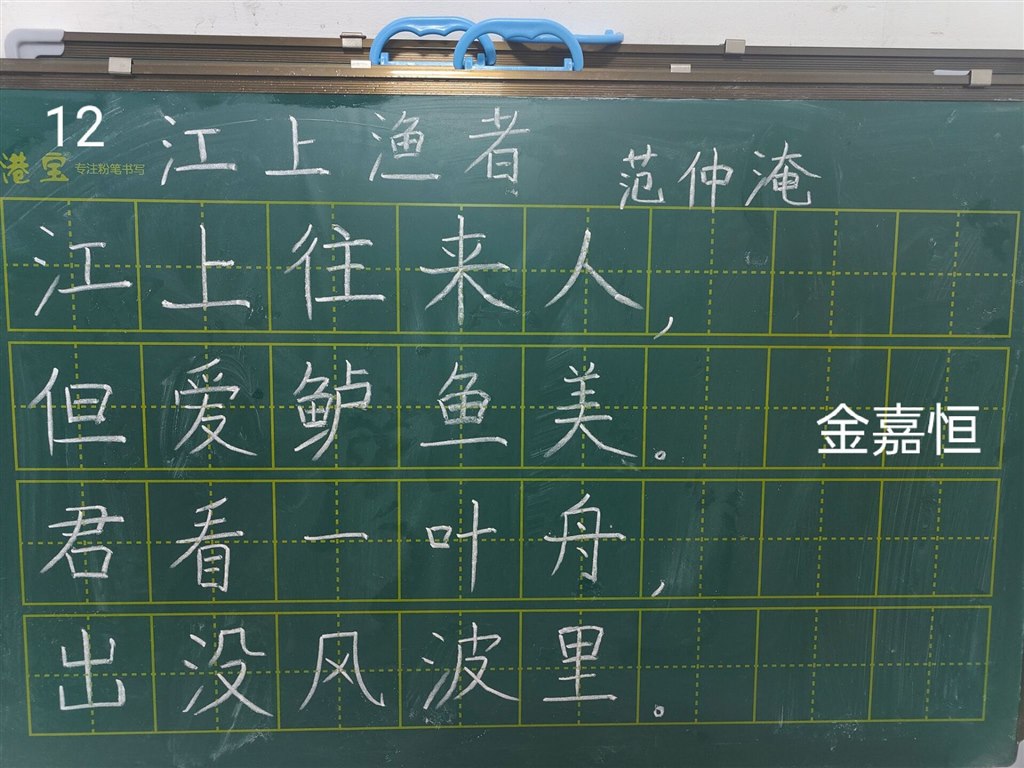 12
江上渔者
港宝 专注粉笔书写
范仲淹
江上往来人,
但爱鲈鱼美。
金嘉恒
君看一叶舟,
出没风波里。